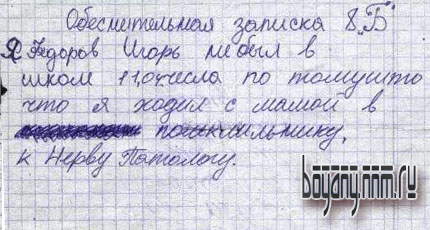 Обеснительная записка 8 "Б"
Я Федоров Игорь не был в
школ 11,0 числа по томушто
что я ходил с мамой в
к Нерву Патологу.
boyany.nnm.ru